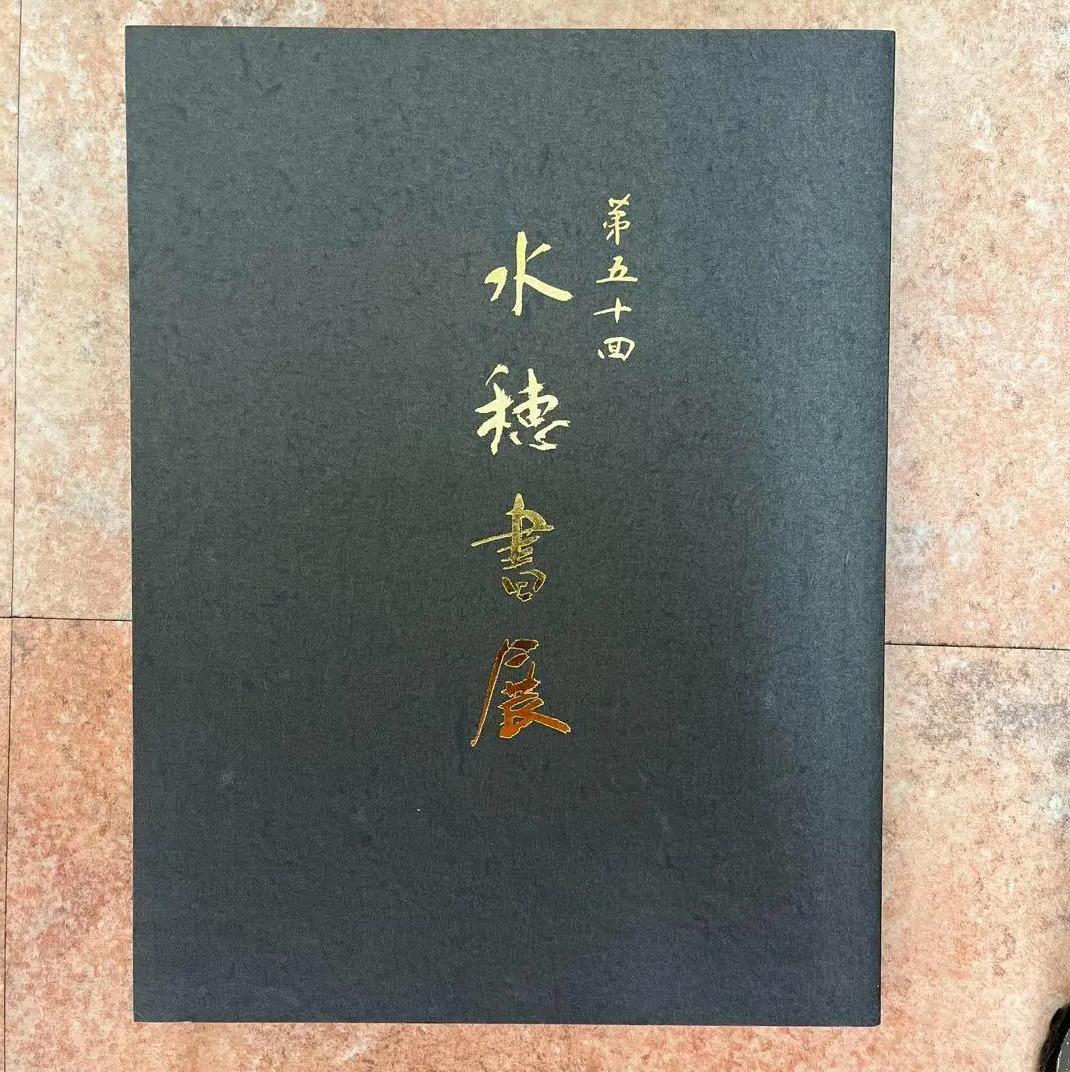 第五十回
水穂書展